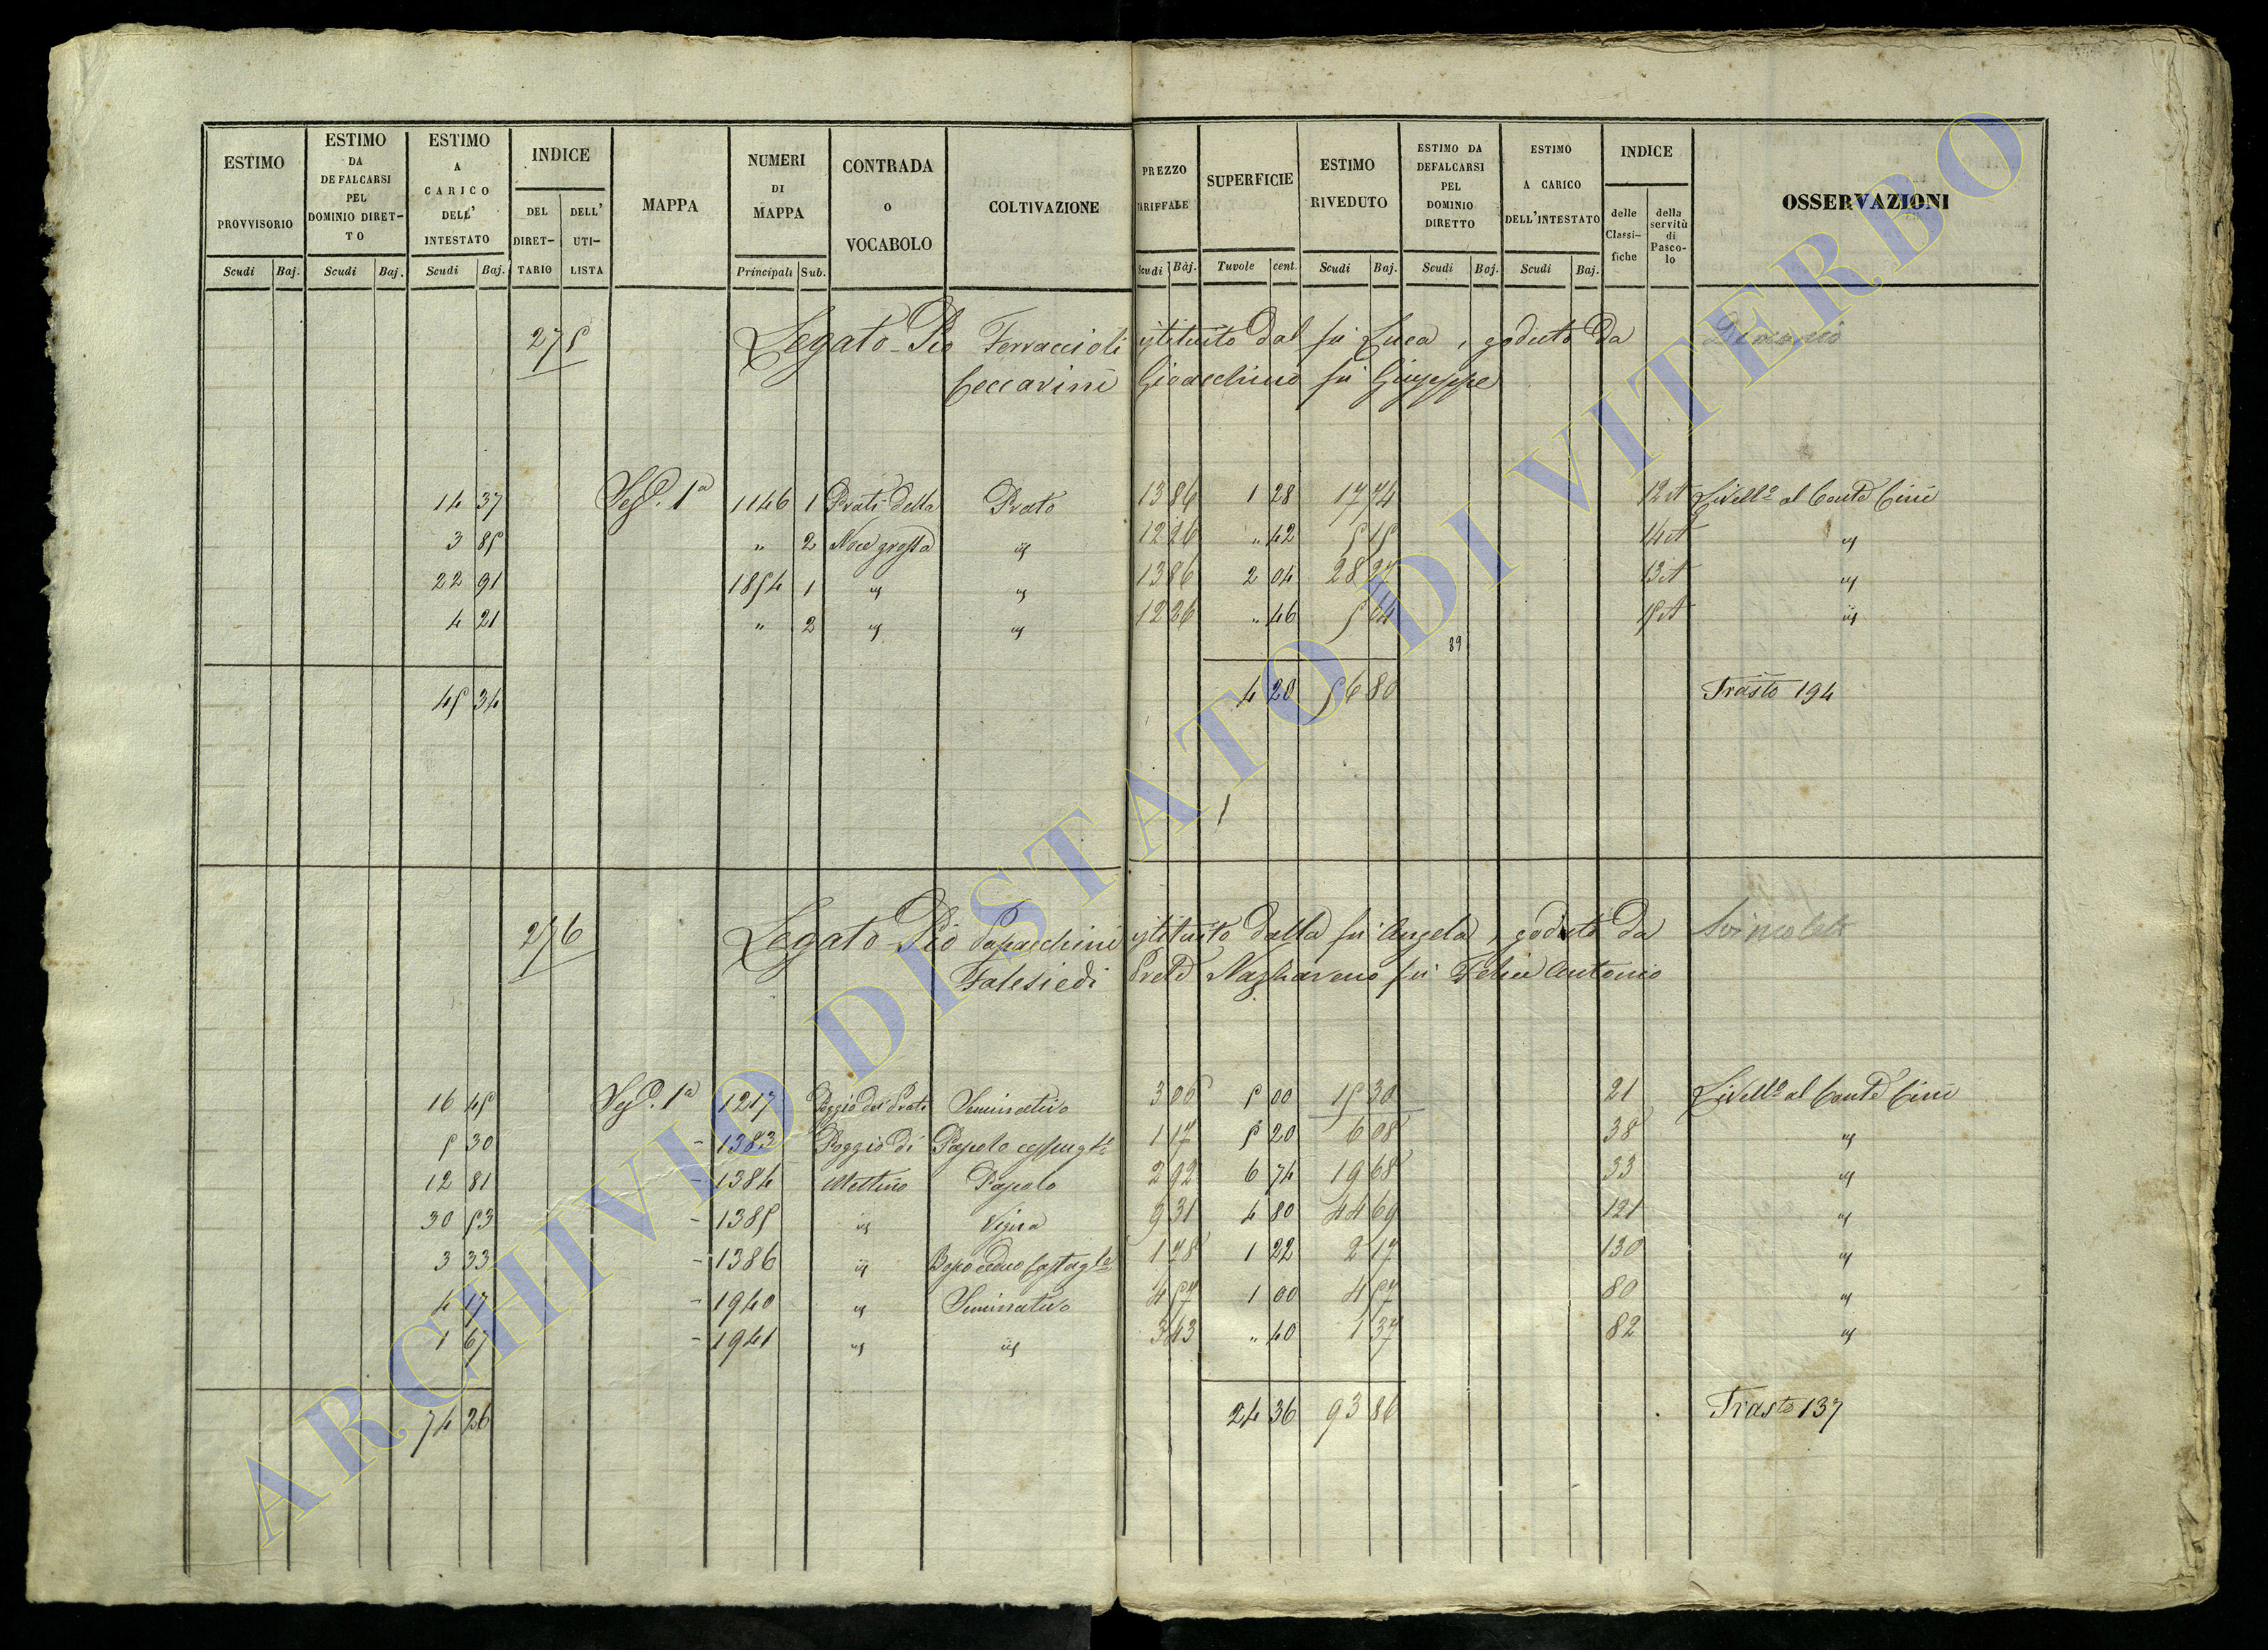 ESTIMO PROVVISORIO Scudi Baj.
ESTIMO DA DEFALCARSI PEL DOMINIO DIRETTO Scudi Baj.
ESTIMO A CARICO DELL' INTESTATO Scudi Baj.
INDICE DEL DIRETTARIO DELL' UTILISTA
MAPPA
NUMERI DI MAPPA Principali Sub.
CONTRADA o VOCABOLO
COLTIVAZIONE
PREZZO TARIFFALE Scudi Baj.
SUPERFICIE Tavole cent.
ESTIMO RIVEDUTO Scudi Baj.
ESTIMO DA DEFALCARSI PEL DOMINIO DIRETTO Scudi Baj.
ESTIMO A CARICO DELL'INTESTATO Scudi Baj.
INDICE delle Classifiche della servitù di Pascolo
OSSERVAZIONI
275 Legato Pio Ferraccioli istituito dal fù Luca, goduto da
Ceccarini Gioacchino fù Giuseppe
14 37 Sez. 1a 1146 1 Prati della Prato 13 86 1 28 17 74 12 A Livello al Conte Cini
3 85 " 2 Noce grossa id 12 26 " 42 5 15 14 A id
22 91 1854 1 id id 13 86 2 04 28 27 13 A id
4 21 " 2 id id 12 26 " 46 5 64 15 A id
89
45 34 4 20 56 80 Trasto 194
276 Legato Pio Papacchini istituito dalla fù Angela, goduto da Svincolato
Falesiedi Prete Nazzareno fù Felice Antonio
16 45 Sez. 1a 1217 Poggio dei Prati Seminativo 3 06 5 00 15 30 21 Livello al Conte Cini
5 30 - 1383 Poggio di Pascolo cespugto 1 17 5 20 6 08 38 id
12 81 - 1384 Mettino Pascolo 2 92 6 74 19 68 33 id
30 53 - 1385 id Vigna 9 31 4 80 44 69 121 id
3 33 - 1386 id Bosco ceduo Castagle 1 78 1 22 2 17 130 id
4 17 - 1940 id Seminativo 4 57 1 00 4 57 80 id
1 67 - 1941 id id 3 43 " 40 1 37 82 id
74 26 24 36 93 86 Trasto 137
ARCHIVIO DI STATO DI VITERBO